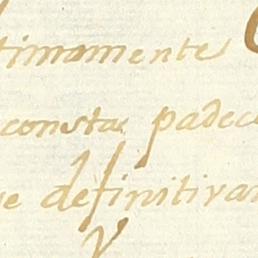 timamente
consta padec
se definitivam